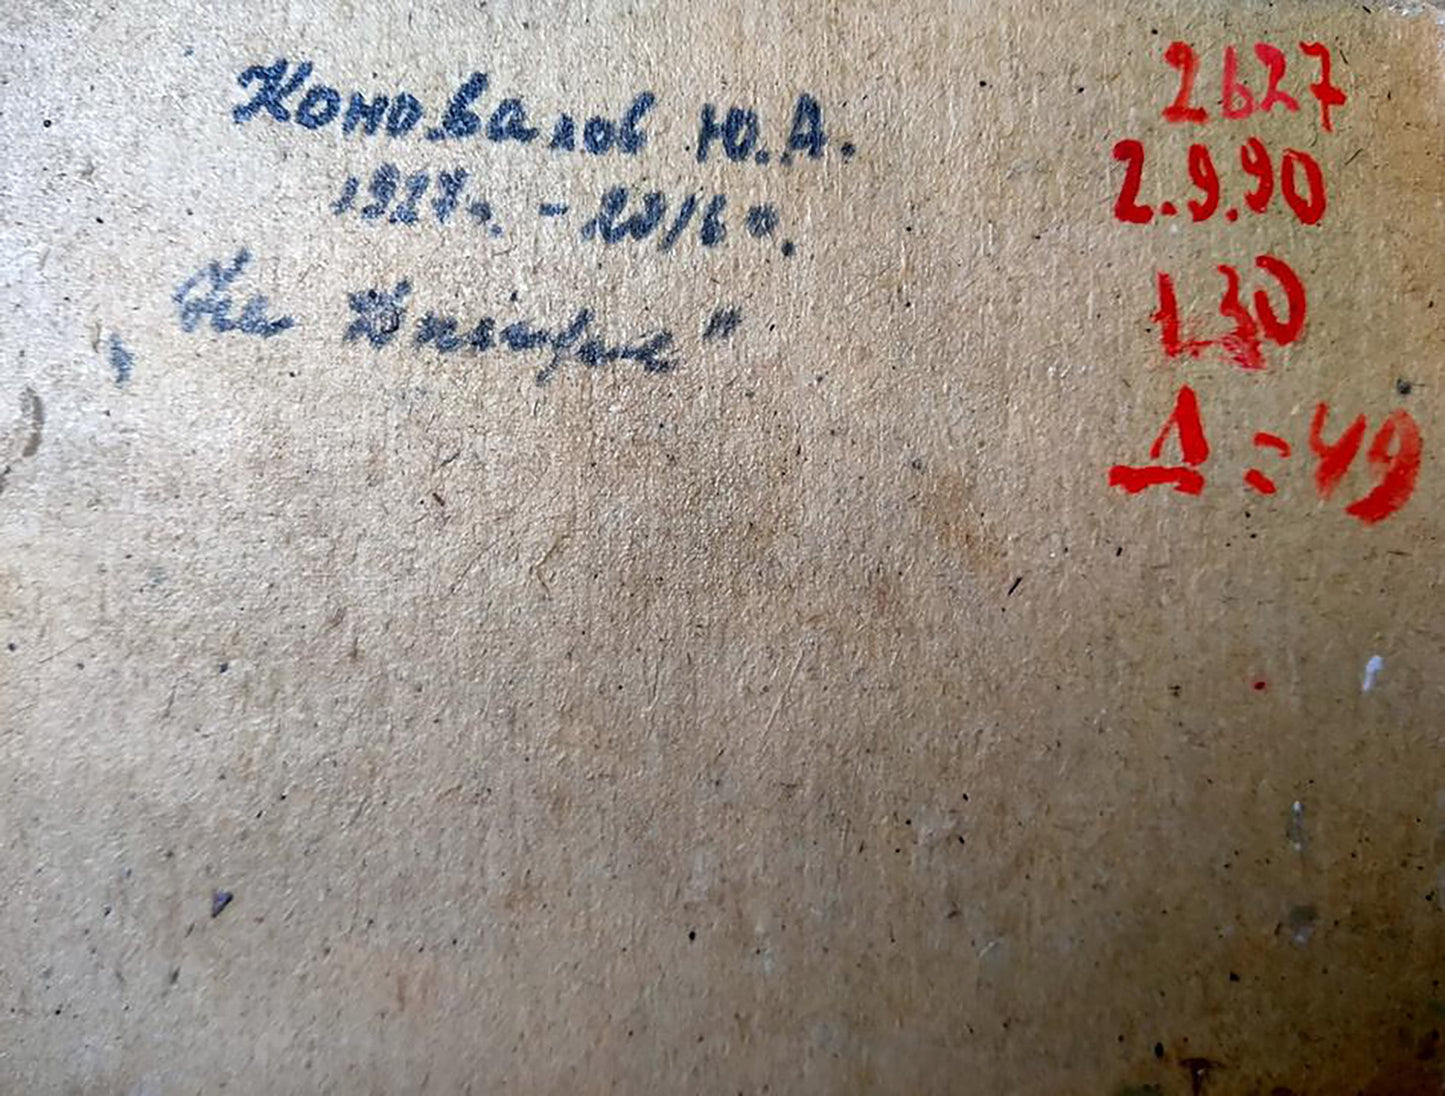 Коновалов Ю.А.
1927г. - 2016г.
„На Днепре"
2627
2.9.90
130
Д=49